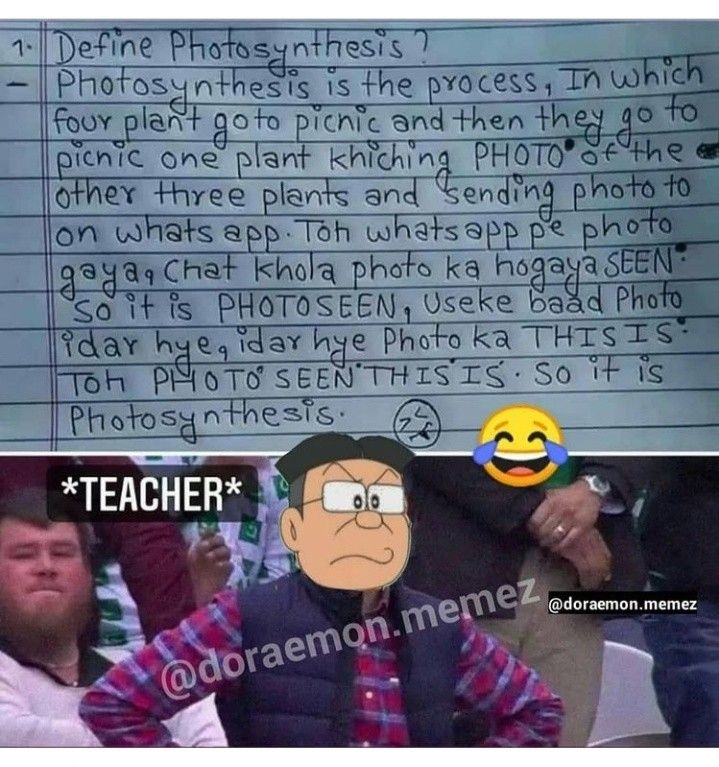 1. Define Photosynthesis?
- Photosynthesis is the process, In which
four plant go to picnic and then they go to
picnic one plant khiching PHOTO of the
other three plants and sending photo to
on whats app. Toh whatsapp pe photo
gaya, Chat khola photo ka hogaya SEEN.
So it is PHOTOSEEN, Useke baad Photo
idar hye, idar hye Photo ka THIS IS.
Toh PHOTO SEEN THIS IS. So it is
Photosynthesis.
*TEACHER*
@doraemon.memez
@doraemon.memez